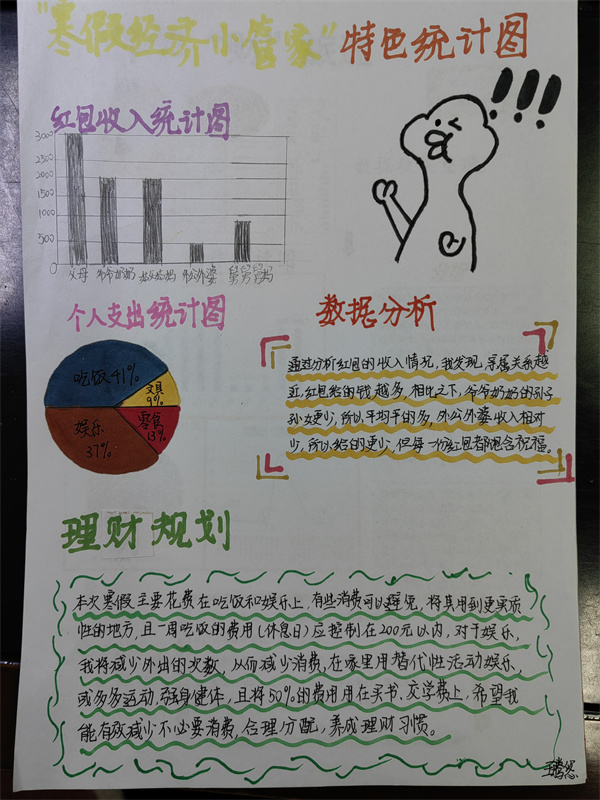 "寒假经济小管家"特色统计图
红包收入统计图
3000
2500
2000
1500
1000
500
0
父母 爷爷奶奶 姑姑姑妈 外公外婆 舅舅舅妈
个人支出统计图
吃饭41%
文具
9%
零食
13%
娱乐
37%
数据分析
通过分析红包的收入情况,我发现,亲属关系越
近,红包给的钱越多,相比之下,爷爷奶奶的孙子
孙女更少,所以平均下的多,外公外婆收入相对
少,所以给的更少,但每一份红包都饱含祝福。
理财规划
本次寒假主要花费在吃饭和娱乐上,有些消费可以避免,将其用到更实质
性的地方,且一周吃饭的费用(休息日)应控制在200元以内,对于娱乐,
我将减少外出的次数,从而减少消费,在家里用替代性活动娱乐,
或多多运动,强身健体,且将50%的费用用在买书、交学费上,希望我
能有效减少不必要消费,合理分配,养成理财习惯。